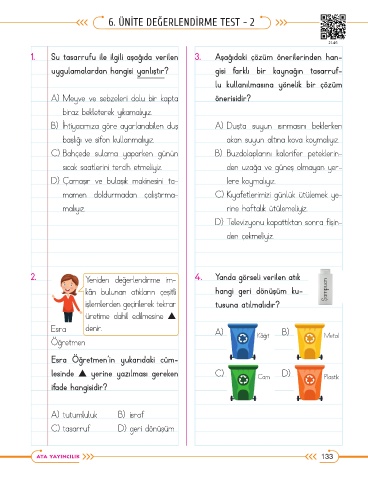 6. ÜNİTE DEĞERLENDİRME TEST - 2
1. Su tasarrufu ile ilgili aşağıda verilen
uygulamalardan hangisi yanlıştır?
A) Meyve ve sebzeleri dolu bir kapta
biraz bekleterek yıkamalıyız.
B) İhtiyacımıza göre ayarlanabilen duş
başlığı ve sifon kullanmalıyız.
C) Bahçede sulama yaparken günün
sıcak saatlerini tercih etmeliyiz.
D) Çamaşır ve bulaşık makinesini ta-
mamen doldurmadan çalıştırma-
malıyız.
2. Yeniden değerlendirme im-
kânı bulunan atıkların çeşitli
işlemlerden geçirilerek tekrar
üretime dahil edilmesine ▲
denir.
Esra
Öğretmen
Esra Öğretmen'in yukarıdaki cüm-
lesinde ▲ yerine yazılması gereken
ifade hangisidir?
A) tutumluluk B) israf
C) tasarruf D) geri dönüşüm
3. Aşağıdaki çözüm önerilerinden han-
gisi farklı bir kaynağın tasarruf-
lu kullanılmasına yönelik bir çözüm
önerisidir?
A) Duşta suyun ısınmasını beklerken
akan suyun altına kova koymalıyız.
B) Buzdolaplarını kalorifer peteklerin-
den uzağa ve güneş almayan yer-
lere koymalıyız.
C) Kıyafetlerimizi günlük ütülemek ye-
rine haftalık ütülemeliyiz.
D) Televizyonu kapattıktan sonra fişin-
den çekmeliyiz.
4. Yanda görseli verilen atık
hangi geri dönüşüm ku-
tusuna atılmalıdır?
Şampuan
A) Kâğıt B) Metal
C) Cam D) Plastik
ATA YAYINCILIK
133